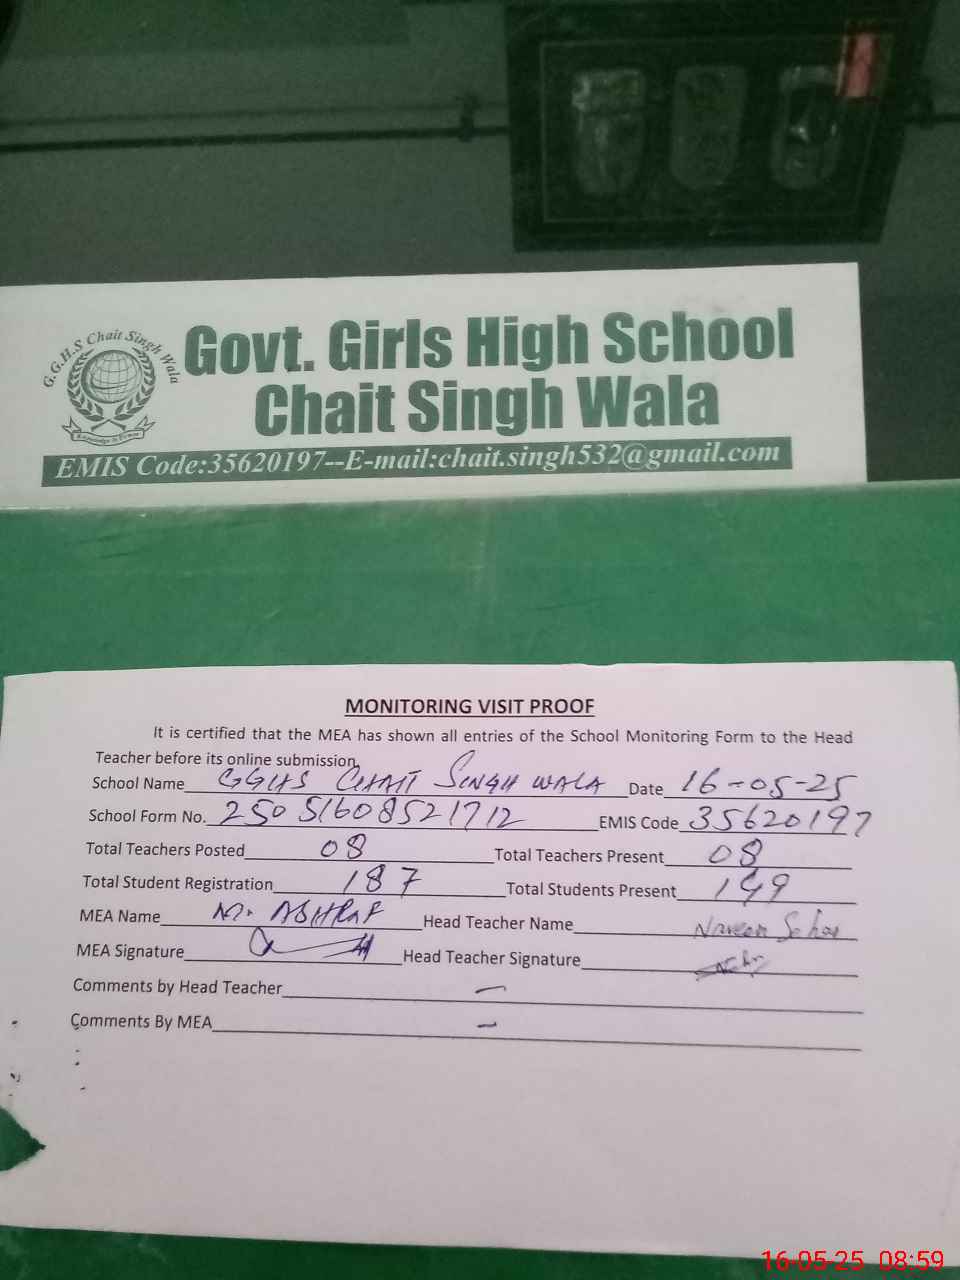 G.G.H.S Chait Singh Wala
Govt. Girls High School
Chait Singh Wala
EMIS Code:35620197--E-mail:chait.singh532@gmail.com
MONITORING VISIT PROOF
It is certified that the MEA has shown all entries of the School Monitoring Form to the Head
Teacher before its online submission.
School Name GGHS CHAIT SINGH WALA Date 16-05-25
School Form No. 25051608521712 EMIS Code 35620197
Total Teachers Posted 08 Total Teachers Present 08
Total Student Registration 187 Total Students Present
MEA Name M. ASHRAF Head Teacher Name
MEA Signature Head Teacher Signature
Comments by Head Teacher -
Comments By MEA -
16-05-25 08:59